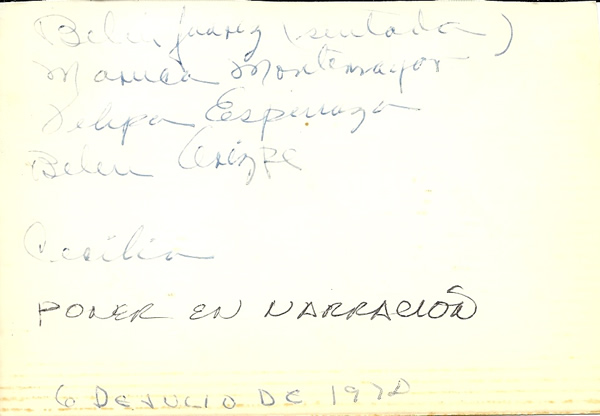 Belen Juarez (sentada)
Maruca Montemayor
Felipa Espinoza
Belen Arizpe
Cecilia
PONER EN NARRACIÓN
6 DE JULIO DE